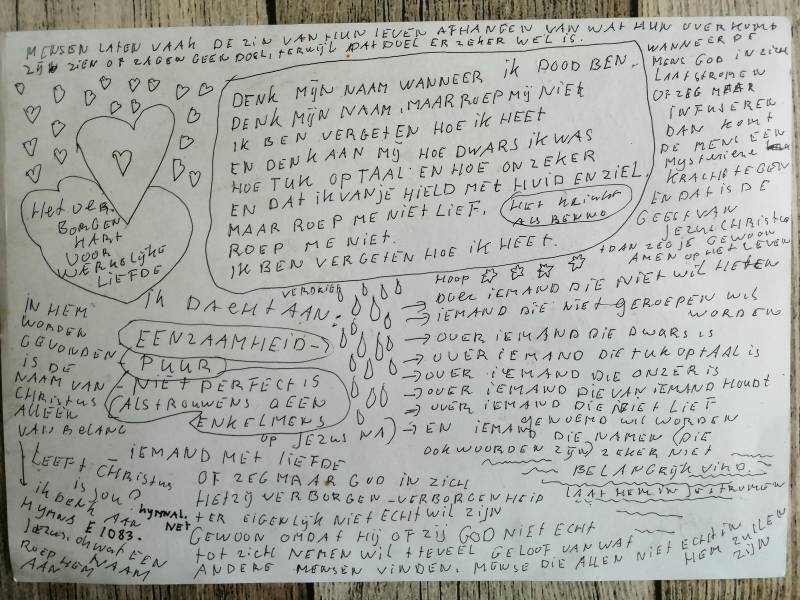 MENSEN LATEN VAAK DE ZIN VAN HUN LEVEN AFHANGEN VAN WAT HUN OVERKOMT
ZIJ ZIEN OF ZAGEN GEEN DOEL, TERWIJL DAT DOEL ER ZEKER WEL IS.
DENK MIJN NAAM WANNEER IK DOOD BEN.
DENK MIJN NAAM, MAAR ROEP MIJ NIET
IK BEN VERGETEN HOE IK HEET
EN DENK AAN MIJ HOE DWARS IK WAS
HOE TUK OP TAAL EN HOE ONZEKER
EN DAT IK VAN JE HIELD MET HUID EN ZIEL.
MAAR ROEP ME NIET LIEF.
ROEP ME NIET.
IK BEN VERGETEN HOE IK HEET.
HET
ALS BENNO
WANNEER DE
MENS GOD IN ZICH
LAAT STROMEN
OF ZEG MAAR
INFUSEREN
DAN KOMT
DE MENS EEN
MYSTERIEZE
KRACHT TEGEN
EN DAT IS DE
GEEST VAN
JEZUS CHRISTUS
DAN ZEG JE GEWOON
AMEN OP HET LEVEN
HET VER-
BORGEN
HART
VOOR
WERKELIJKE
LIEFDE
IK DACHT AAN:
EENZAAMHEID -
- PUUR
- NIET PERFECT IS
ALSTROUWENS GEEN
ENKEL MENS
OP JEZUS NA)
VERDRIET
HOOP
→ OVER IEMAND DIE NIET WIL HETEN
→ IEMAND DIE NIET GEROEPEN WIL
WORDEN
→ OVER IEMAND DIE DWARS IS
→ OVER IEMAND DIE TUK OP TAAL IS
→ OVER IEMAND DIE ONZER IS
→ OVER IEMAND DIE VAN IEMAND HOUDT
→ OVER IEMAND DIE NIET LIEF
GENOEMD WIL WORDEN
→ EN IEMAND DIE NAMEN (DIE
OOK WOORDEN ZIJN) ZEKER NIET
BELANGRIJK VIND.
LAAT HEM IN JE STROMEN
IN HEM
WORDEN
GEVONDEN
IS DE
NAAM VAN
CHRISTUS
ALLEEN
VAN BELANG
LEEFT CHRISTUS
IS JOU?
IK DENK AAN
HYMNS E 1083.
HYMNAL.
NET
JEZUS, OH WAT EEN
NAAM
ROEP HEM
AAN
IEMAND MET LIEFDE
OF ZEG MAAR GOD IN ZICH
HETZIJ VERBORGEN - VERBORGENHEID
TER EIGENLIJK NIET ECHT WIL ZIJN
GEWOON OMDAT HIJ OF ZIJ GOD NIET ECHT
TOT ZICH NEMEN WIL TEVEEL GELOOF VAN WAT
ANDERE MENSEN VINDEN. MENSE DIE ALLEN NIET ECHT IN
HEM ZULLEN
ZIJN